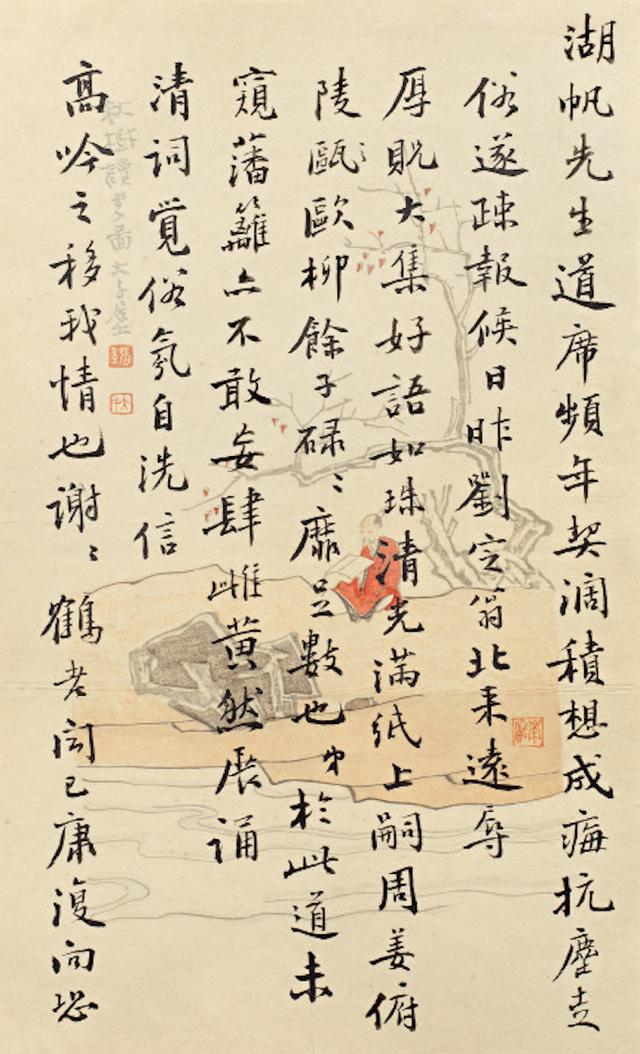 湖帆先生道席頻年契闊積想成痗抗塵走
俗遂疎報候日昨劉定翁北来遠辱
厚貺大集好語如珠清光滿紙上嗣周姜俯
陵甌歐柳餘子碌〻靡足數也弟於此道未
窺藩籬亦不敢妄肆雌黃然展誦
清詞覺俗氛自洗信
高吟之移我情也謝〻鶴老聞已康復向